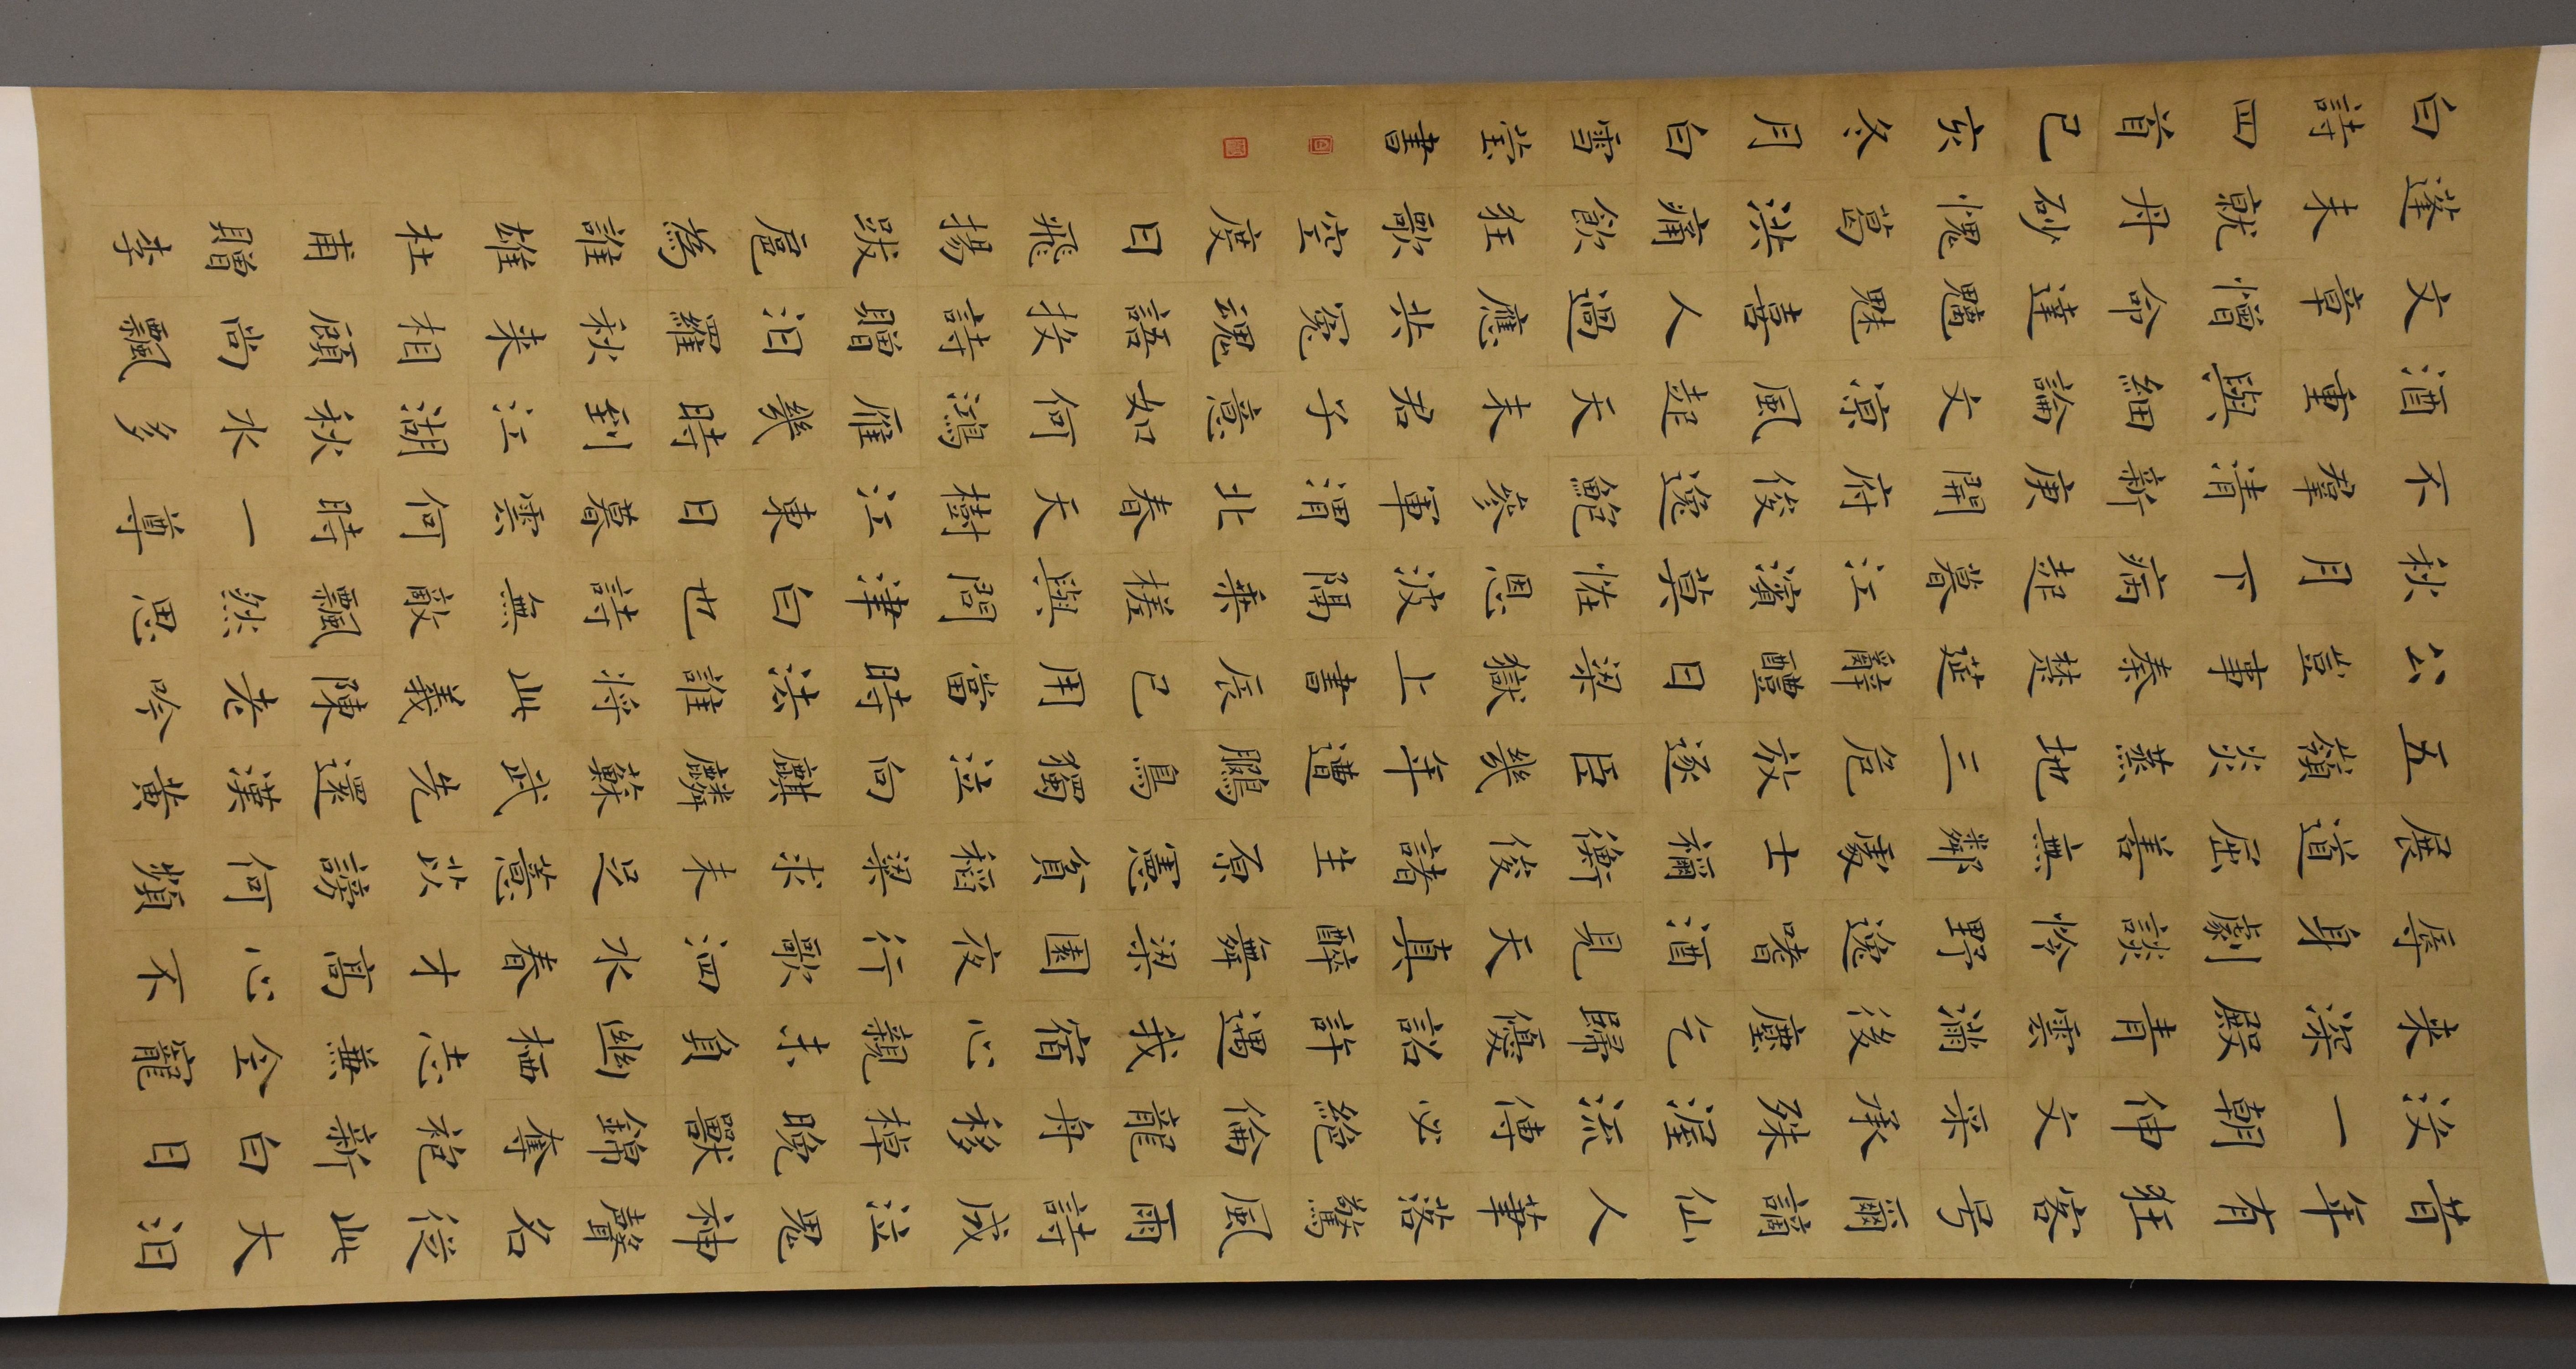 昔年有狂客号爾謫仙人筆落驚風雨詩成泣鬼神聲名從此大汨
沒一朝伸文采承殊渥流傳必絕倫龍舟移棹晚獸錦奪袍新白日
来深殿青雲滿後塵乞歸優詔許遇我宿心親未負幽栖志兼全寵
辱身劇談怜野逸嗜酒見天真醉舞梁園夜行歌泗水春才高心不
展道屈善無鄰處士禰衡俊諸生原憲貧稻粱求未足薏苡謗何頻
五嶺炎蒸地三危放逐臣幾年遭鵩鳥獨泣向麒麟蘇武先還漢黄
公豈事秦楚筵辭醴日梁獄上書辰已用當時法誰將此義陳老吟
秋月下病起暮江濱莫怪恩波隔乘槎與問津白也詩無敵飄然思
不羣清新庾開府俊逸鮑參軍渭北春天樹江東日暮雲何時一尊
酒重與細論文涼風起天末君子意如何鴻雁幾時到江湖秋水多
文章憎命達魑魅喜人過應共冤魂語投詩贈汨羅秋来相顧尚飄
蓬未就丹砂愧葛洪痛飲狂歌空度日飛揚跋扈為誰雄杜甫贈李
白詩四首己亥冬月白雪堂書